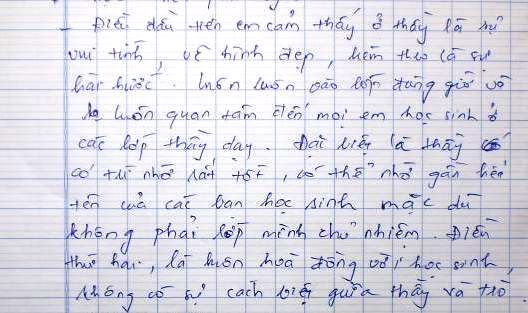 - Điều đầu tiên em cảm thấy ở thầy là sự
vui tính, về hình đẹp, kèm theo là sự
hài hước. Luôn luôn vào lớp đúng giờ và
luôn quan tâm đến mọi em học sinh ở
các lớp thầy dạy. Đặc biệt là thầy
có trí nhớ rất tốt, có thể nhớ gần hết
tên của các bạn học sinh mặc dù
không phải lớp mình chủ nhiệm. Điều
thứ hai, là luôn hoà đồng với học sinh,
không có sự cách biệt giữa thầy và trò.